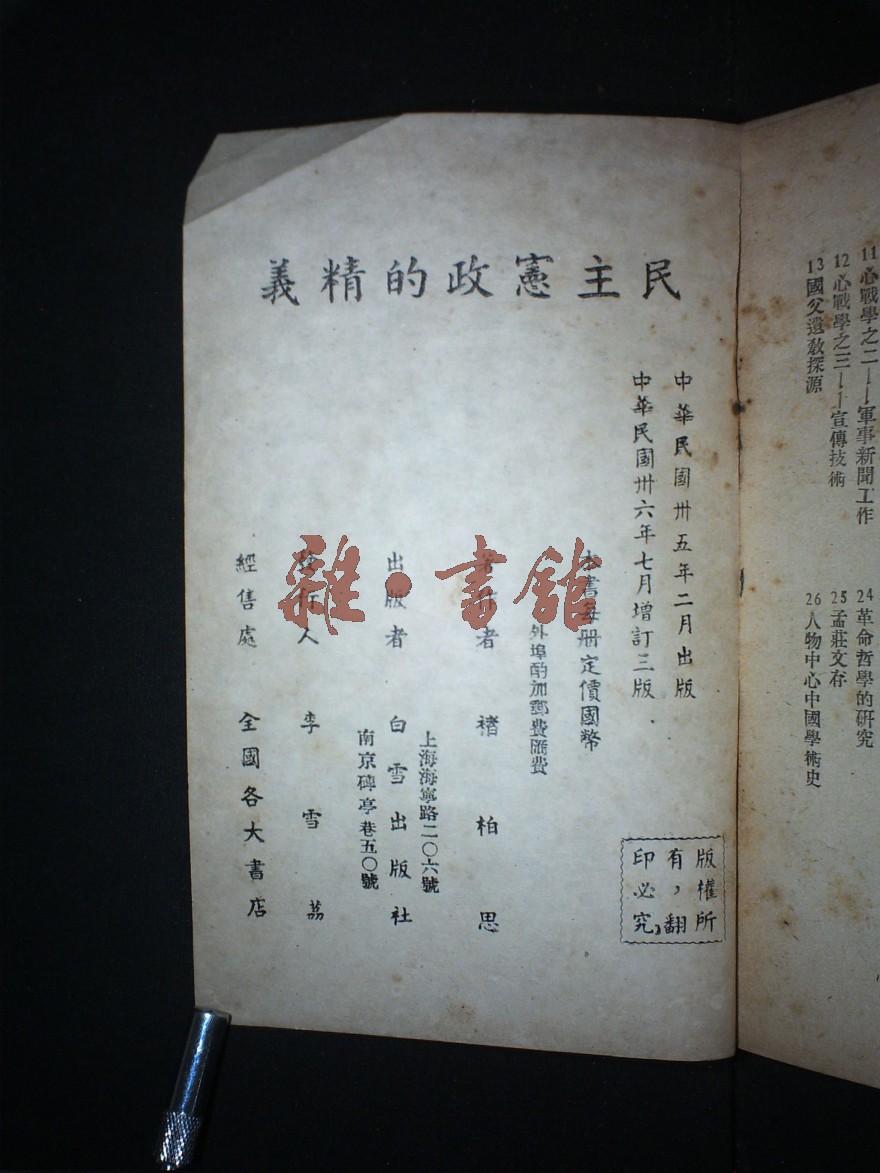 11 心戰學之二——軍事新聞工作
12 心戰學之三——宣傳技術
13 國父遺敎探源
24 革命哲學的研究
25 孟莊文存
26 人物中心中國學術史
民主憲政的精義
中華民國卅五年二月出版
中華民國卅六年七月增訂三版
本書每册定價國幣
外埠酌加郵費匯費
著作者 褚柏思
出版者 白雪出版社
上海海寧路二〇六號
南京碑亭巷五〇號
發行人 李雪荔
經售處 全國各大書店
版權所
有，翻
印必究
雜·書館